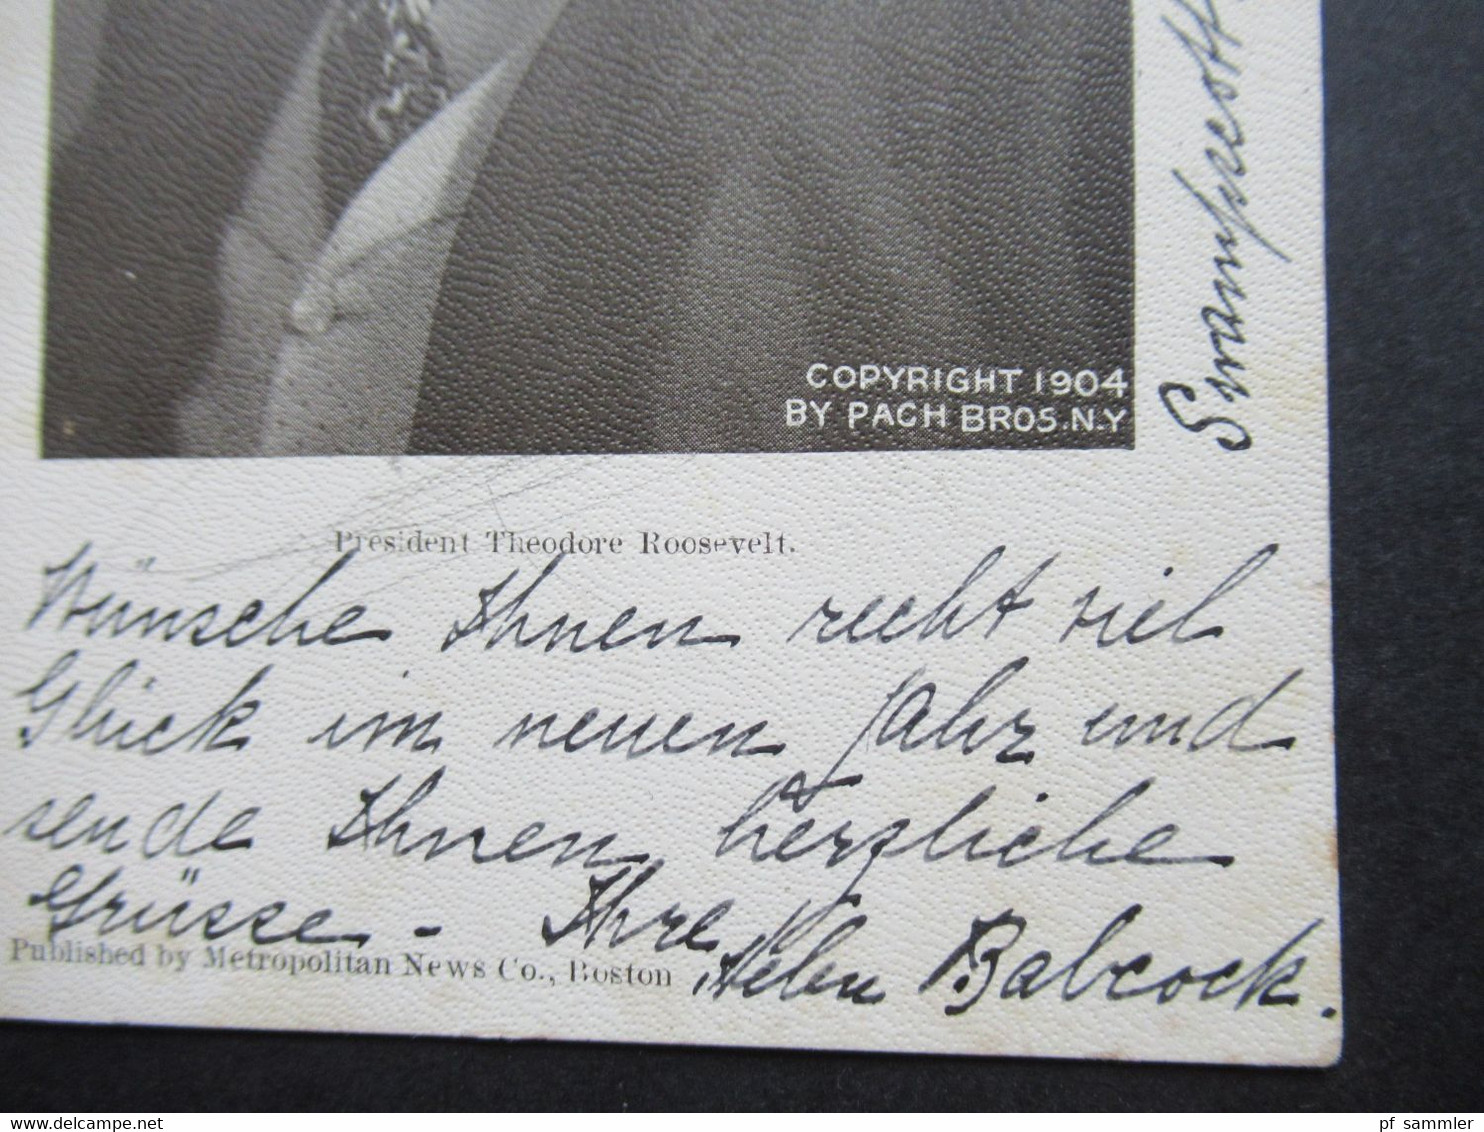 COPYRIGHT 1904
BY PACH BROS. N.Y
President Theodore Roosevelt.
Wünsche Ihnen recht viel
Glück im neuen Jahr und
sende Ihnen herzliche
Grüsse - Ihre
Helen Babcock.
Published by Metropolitan News Co., Boston
Swampscott
pf_sammler